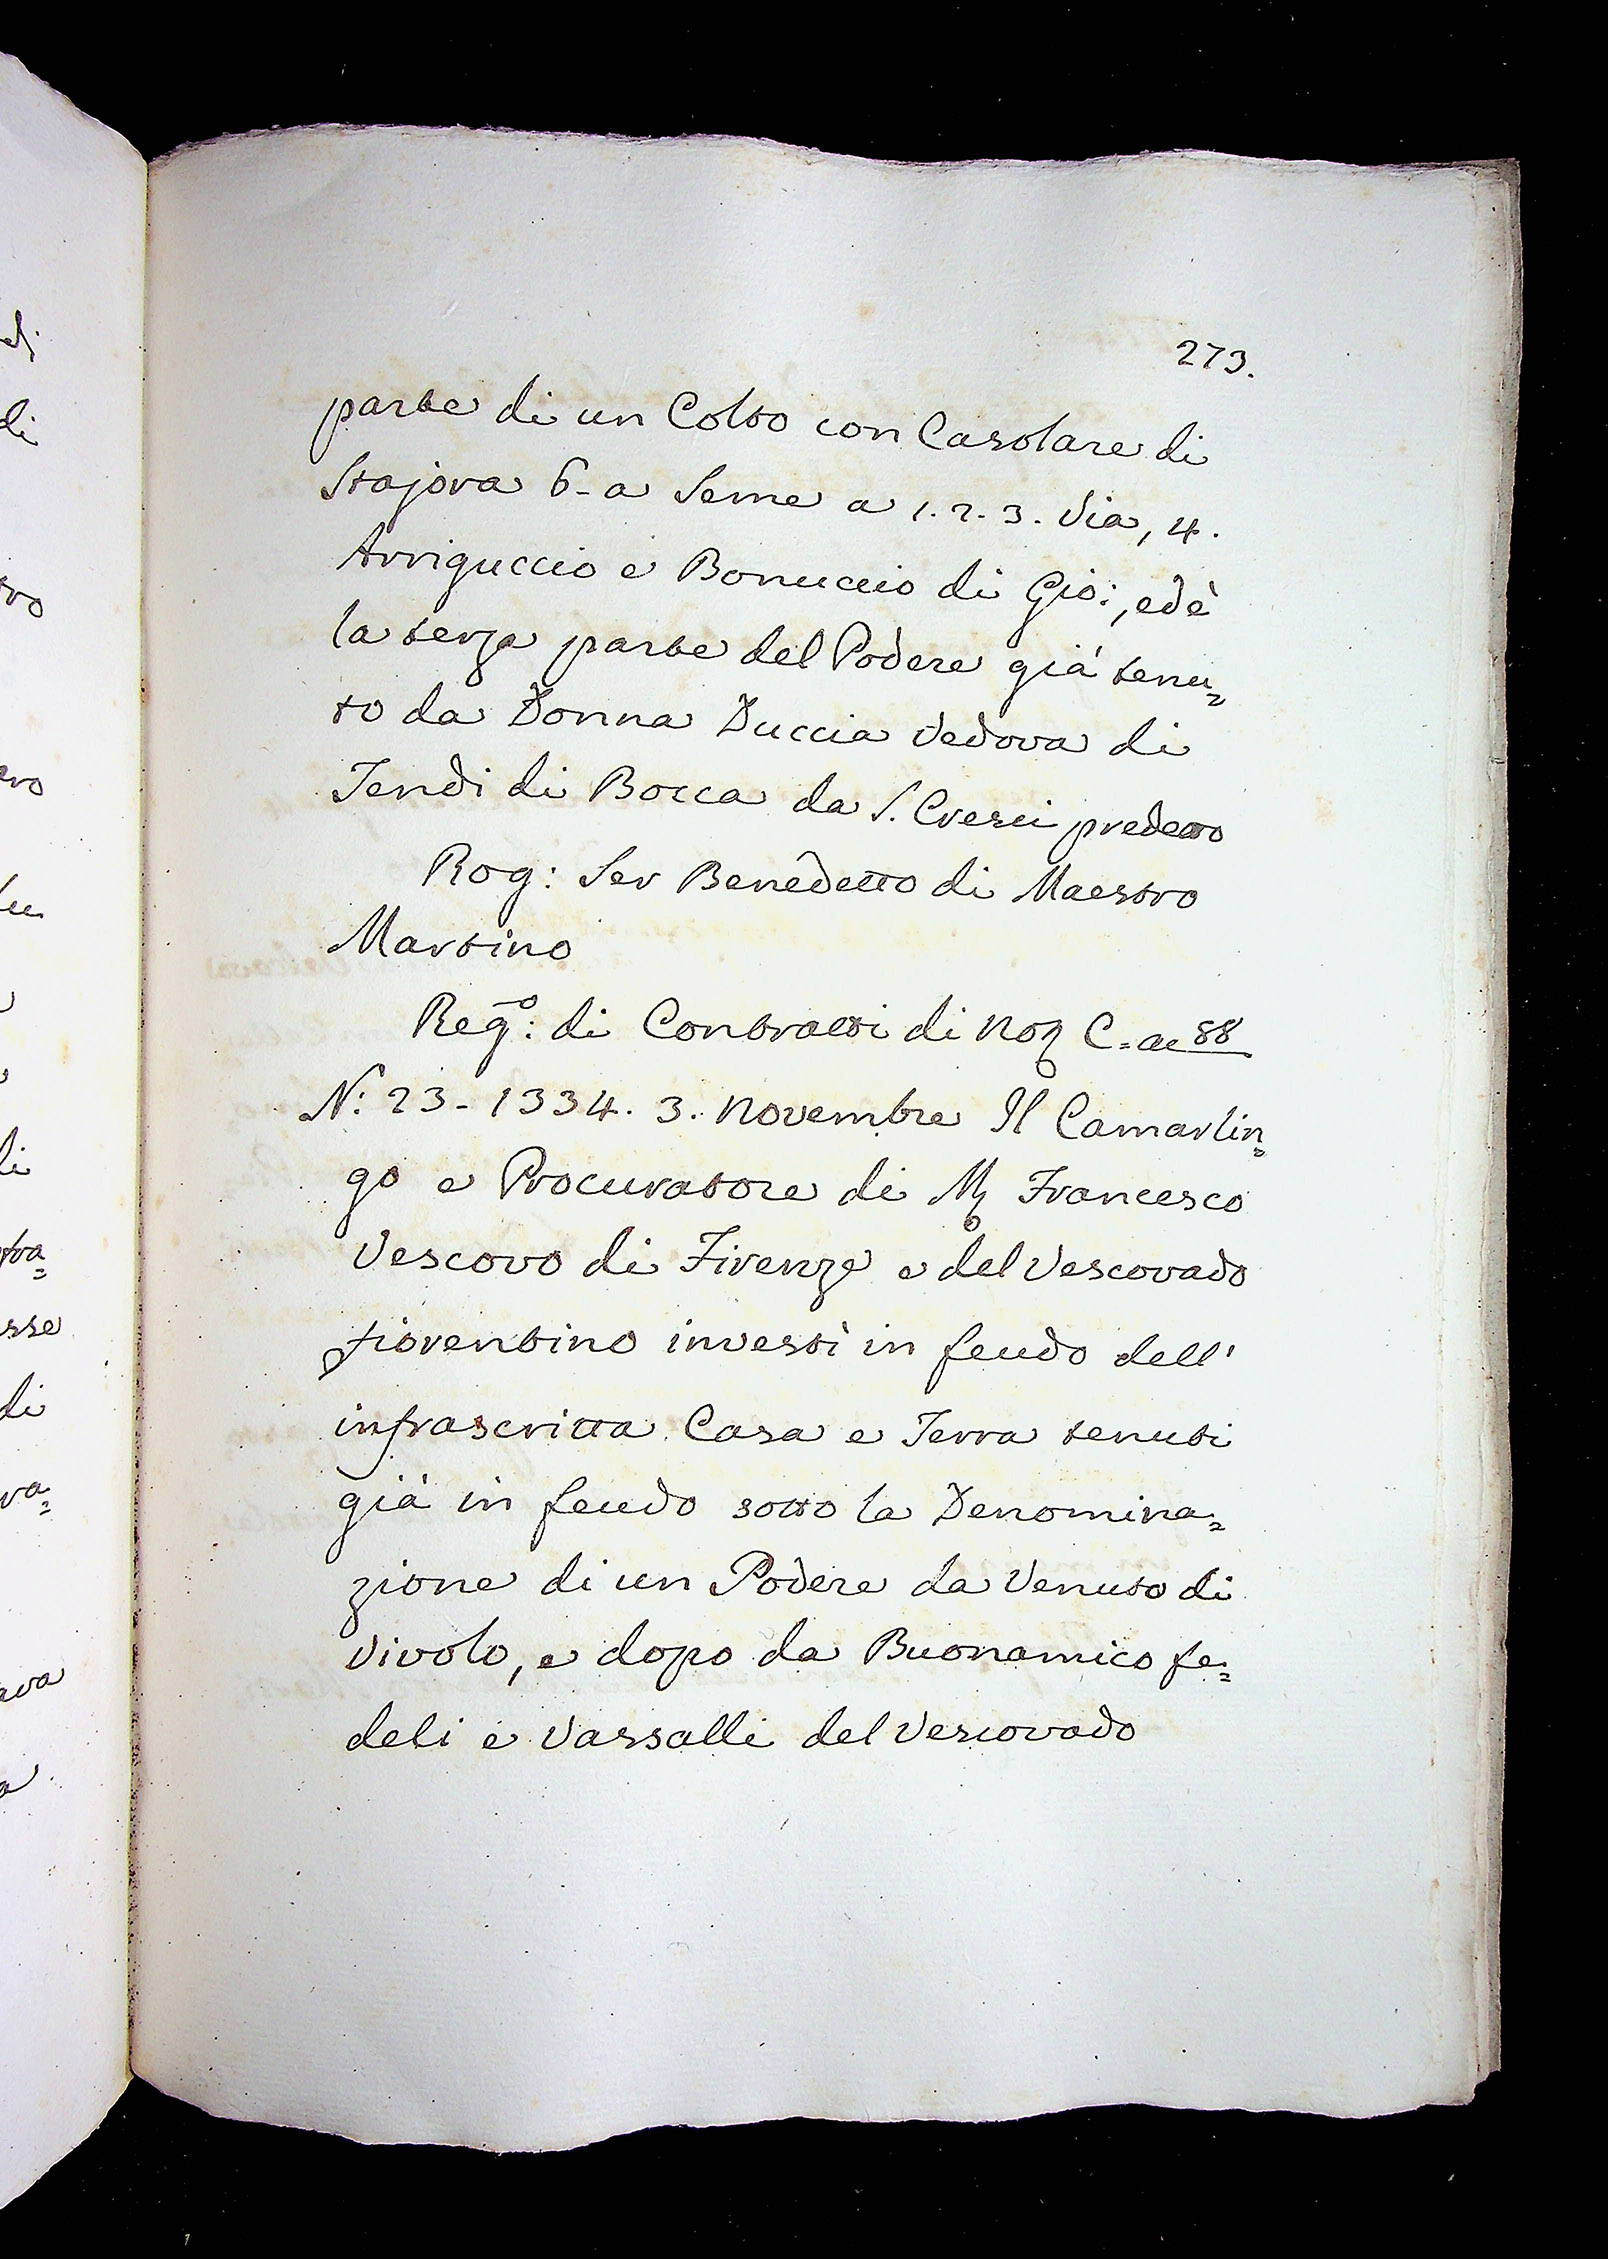 273.
parte di un Colto con Casolare di
Stajora 6 - a Seme a 1. 2. 3. Via, 4.
Arriguccio e Bonuccio di Gio:, ed è
la terza parte del Podere già tenu=
to da Donna Duccia Vedova di
Tendi di Bocca da S. Cresci predetto
Rog: Ser Benedetto di Maestro
Martino
Reg.o: di Contratti di No C = a 88
N: 23 - 1334. 3. Novembre Il Camarlin=
go e Procuratore di M Francesco
Vescovo di Firenze e del Vescovado
fiorentino investì in feudo dell'
infrascritta Casa e Terra tenuti
già in feudo sotto la Denomina=
zione di un Podere da Venuto di
Vivolo, e dopo da Buonamico fe=
deli e Vassalli del Vescovado